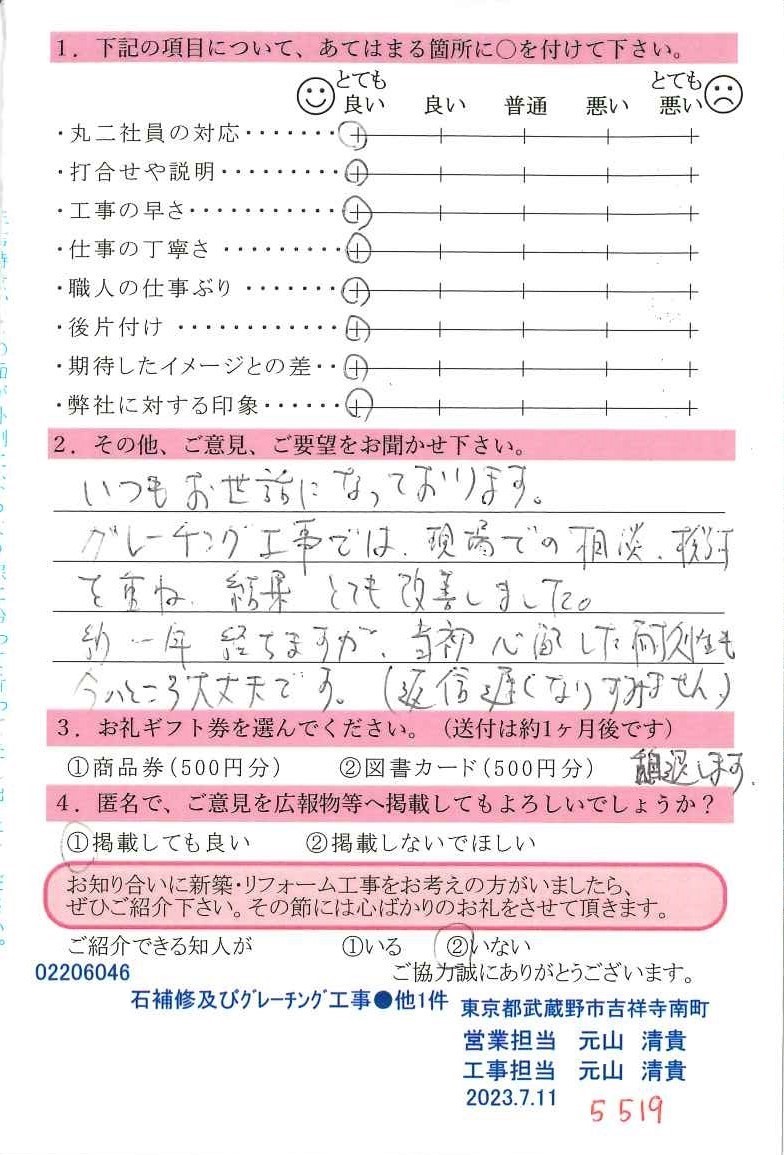 1. 下記の項目について、あてはまる箇所に○を付けて下さい。
とても良い 良い 普通 悪い とても悪い
・丸二社員の対応・・・・・・・
・打合せや説明・・・・・・・・・
・工事の早さ・・・・・・・・・・・
・仕事の丁寧さ ・・・・・・・・・
・職人の仕事ぶり ・・・・・・・
・後片付け ・・・・・・・・・・・・
・期待したイメージとの差・・
・弊社に対する印象・・・・・
2. その他、ご意見、ご要望をお聞かせ下さい。
いつもお世話になっております。
グレーチング工事では、現場での相談、検討
を重ね、結果 とても改善しました。
約一年経ちますが、当初心配した耐久性も
今のところ大丈夫です。(返信遅くなりすみません。)
3. お礼ギフト券を選んでください。(送付は約1ヶ月後です)
①商品券(500円分) ②図書カード(500円分) 辞退します。
4. 匿名で、ご意見を広報物等へ掲載してもよろしいでしょうか?
①掲載しても良い ②掲載しないでほしい
お知り合いに新築・リフォーム工事をお考えの方がいましたら、
ぜひご紹介下さい。その節には心ばかりのお礼をさせて頂きます。
ご紹介できる知人が ①いる ②いない
02206046 ご協力誠にありがとうございます。
石補修及びグレーチング工事●他1件
東京都武蔵野市吉祥寺南町
営業担当 元山 清貴
工事担当 元山 清貴
2023.7.11
5519